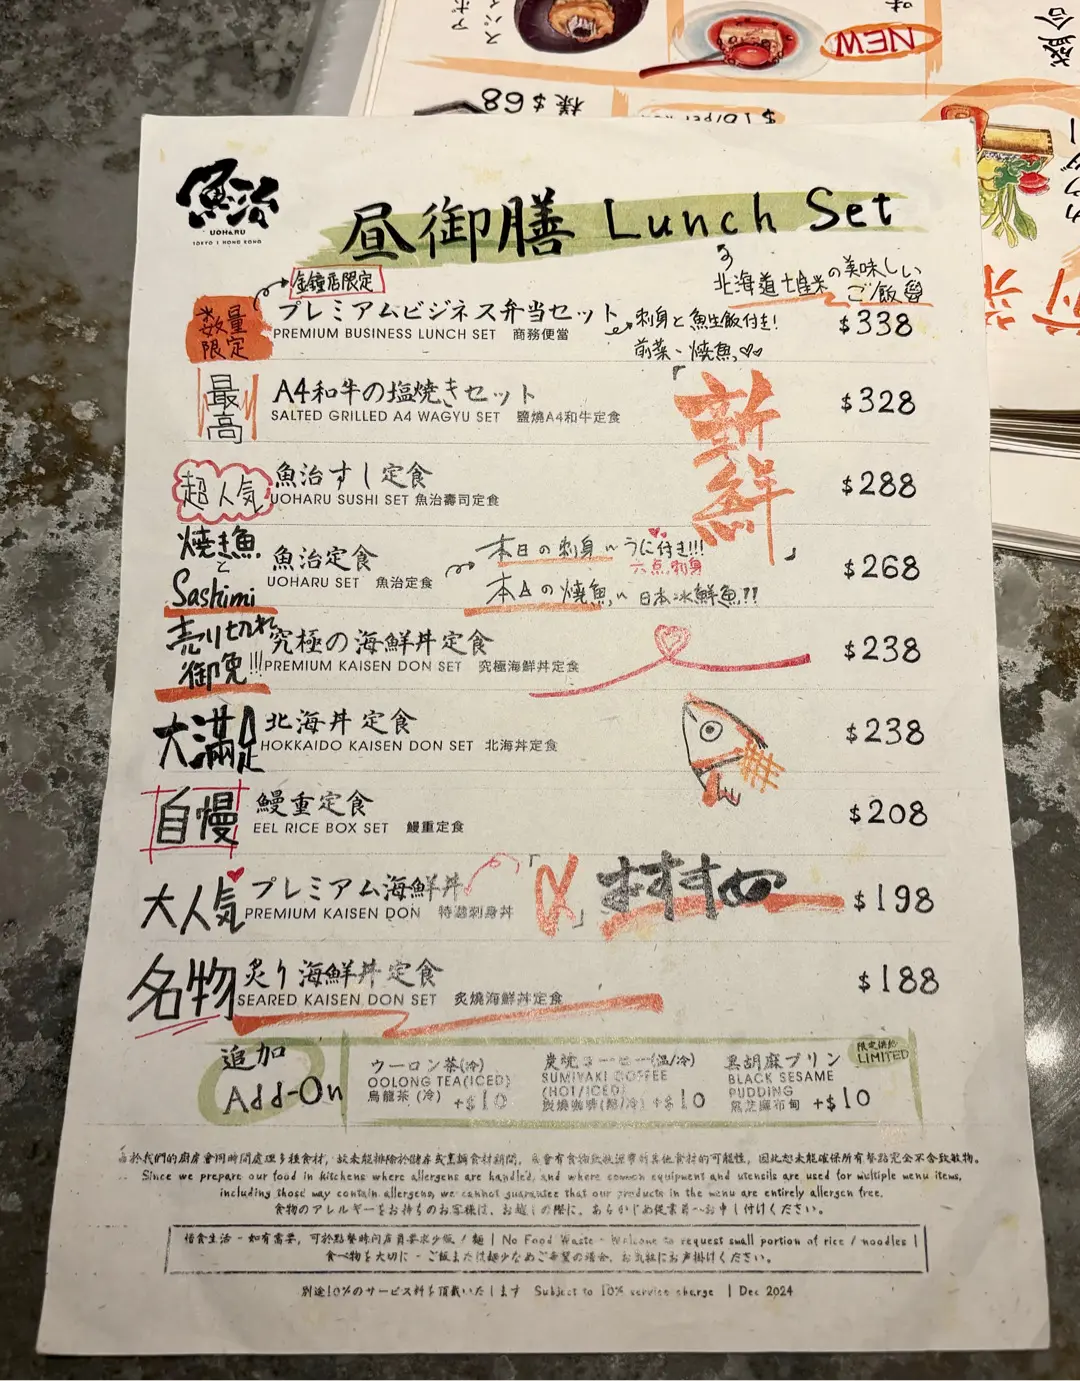 NEW
樣 $68
魚治
UOHARU
TOKYO | HONG KONG
昼御膳 Lunch Set
北海道土産米の美味しい
ご飯
金鐘店限定
数量
限定
プレミアムビジネス弁当セット
PREMIUM BUSINESS LUNCH SET 商務便當
刺身と魚生飯付き!
前菜、焼魚
$338
最高
A4和牛の塩焼きセット
SALTED GRILLED A4 WAGYU SET 鹽燒A4和牛定食
$328
「新鮮」
超人気
魚治すし定食
UOHARU SUSHI SET 魚治壽司定食
$288
焼き魚
と
Sashimi
魚治定食
UOHARU SET 魚治定食
本日の刺身～うに付き!!!
六点刺身
本日の焼魚～日本冰鮮魚!!
$268
売り切れ
御免!!!
究極の海鮮丼定食
PREMIUM KAISEN DON SET 究極海鮮丼定食
$238
大満足
北海丼定食
HOKKAIDO KAISEN DON SET 北海丼定食
$238
自慢
鰻重定食
EEL RICE BOX SET 鰻重定食
$208
大人気
プレミアム海鮮丼
PREMIUM KAISEN DON 特選刺身丼
おすすめ
$198
名物
炙り海鮮丼定食
SEARED KAISEN DON SET 炙燒海鮮丼定食
$188
追加
Add-On
ウーロン茶(冷)
OOLONG TEA(ICED)
烏龍茶 (冷) +$10
炭焼コーヒー(温/冷)
SUMIYAKI COFFEE
(HOT/ICED)
炭燒咖啡(熱/冷) +$10
黒胡麻プリン
BLACK SESAME
PUDDING
黑芝麻布甸 +$10
限定供給
LIMITED
由於我們的廚房會同時間處理多種食材, 故未能排除於儲存或烹調食材期間, 食材會有食物致敏源帶到其他食材的可能性, 因此恕未能確保所有餐點完全不含致敏物。
Since we prepare our food in kitchens where allergens are handled, and where common equipment and utensils are used for multiple menu items,
including those may contain allergens, we cannot guarantee that our products in the menu are entirely allergen free.
食物のアレルギーをお持ちのお客様は、お越しの際に、あらかじめ従業員へお申し付けください。
惜食生活 - 如有需要, 可於點餐時向店員要求少飯 / 麵 | No Food Waste - Welcome to request small portion of rice / noodles |
食べ物を大切に - ご飯または麺少なめご希望の場合、お気軽にお声掛けください。
別途10%のサービス料を頂戴いたします Subject to 10% service charge | Dec 2024